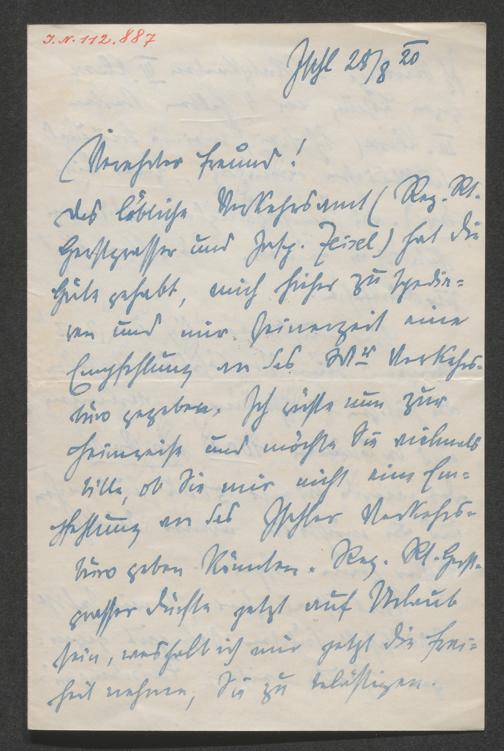 I.N. 112.887
Ischl 28/8 20
Verehrter Freund!
Das löbliche Verkehrsamt (Reg. Rt.
Gerstgrasser und Insp. Zeisel) hat die
Güte gehabt, mich hieher zu spedie-
ren und mir seinerzeit eine
Empfehlung an das Wr Verkehrs-
büro gegeben. Ich rüste nun zur
Heimreise und möchte Sie vielmals
bitte, ob Sie mir nicht eine Em-
pfehlung an das Ischler Verkehrs-
büro geben könnten. Reg. Rt. Gerst-
grasser dürfte jetzt auf Urlaub
sein, weshalb ich mir jetzt die Frei-
heit nehme, Sie zu belästigen.